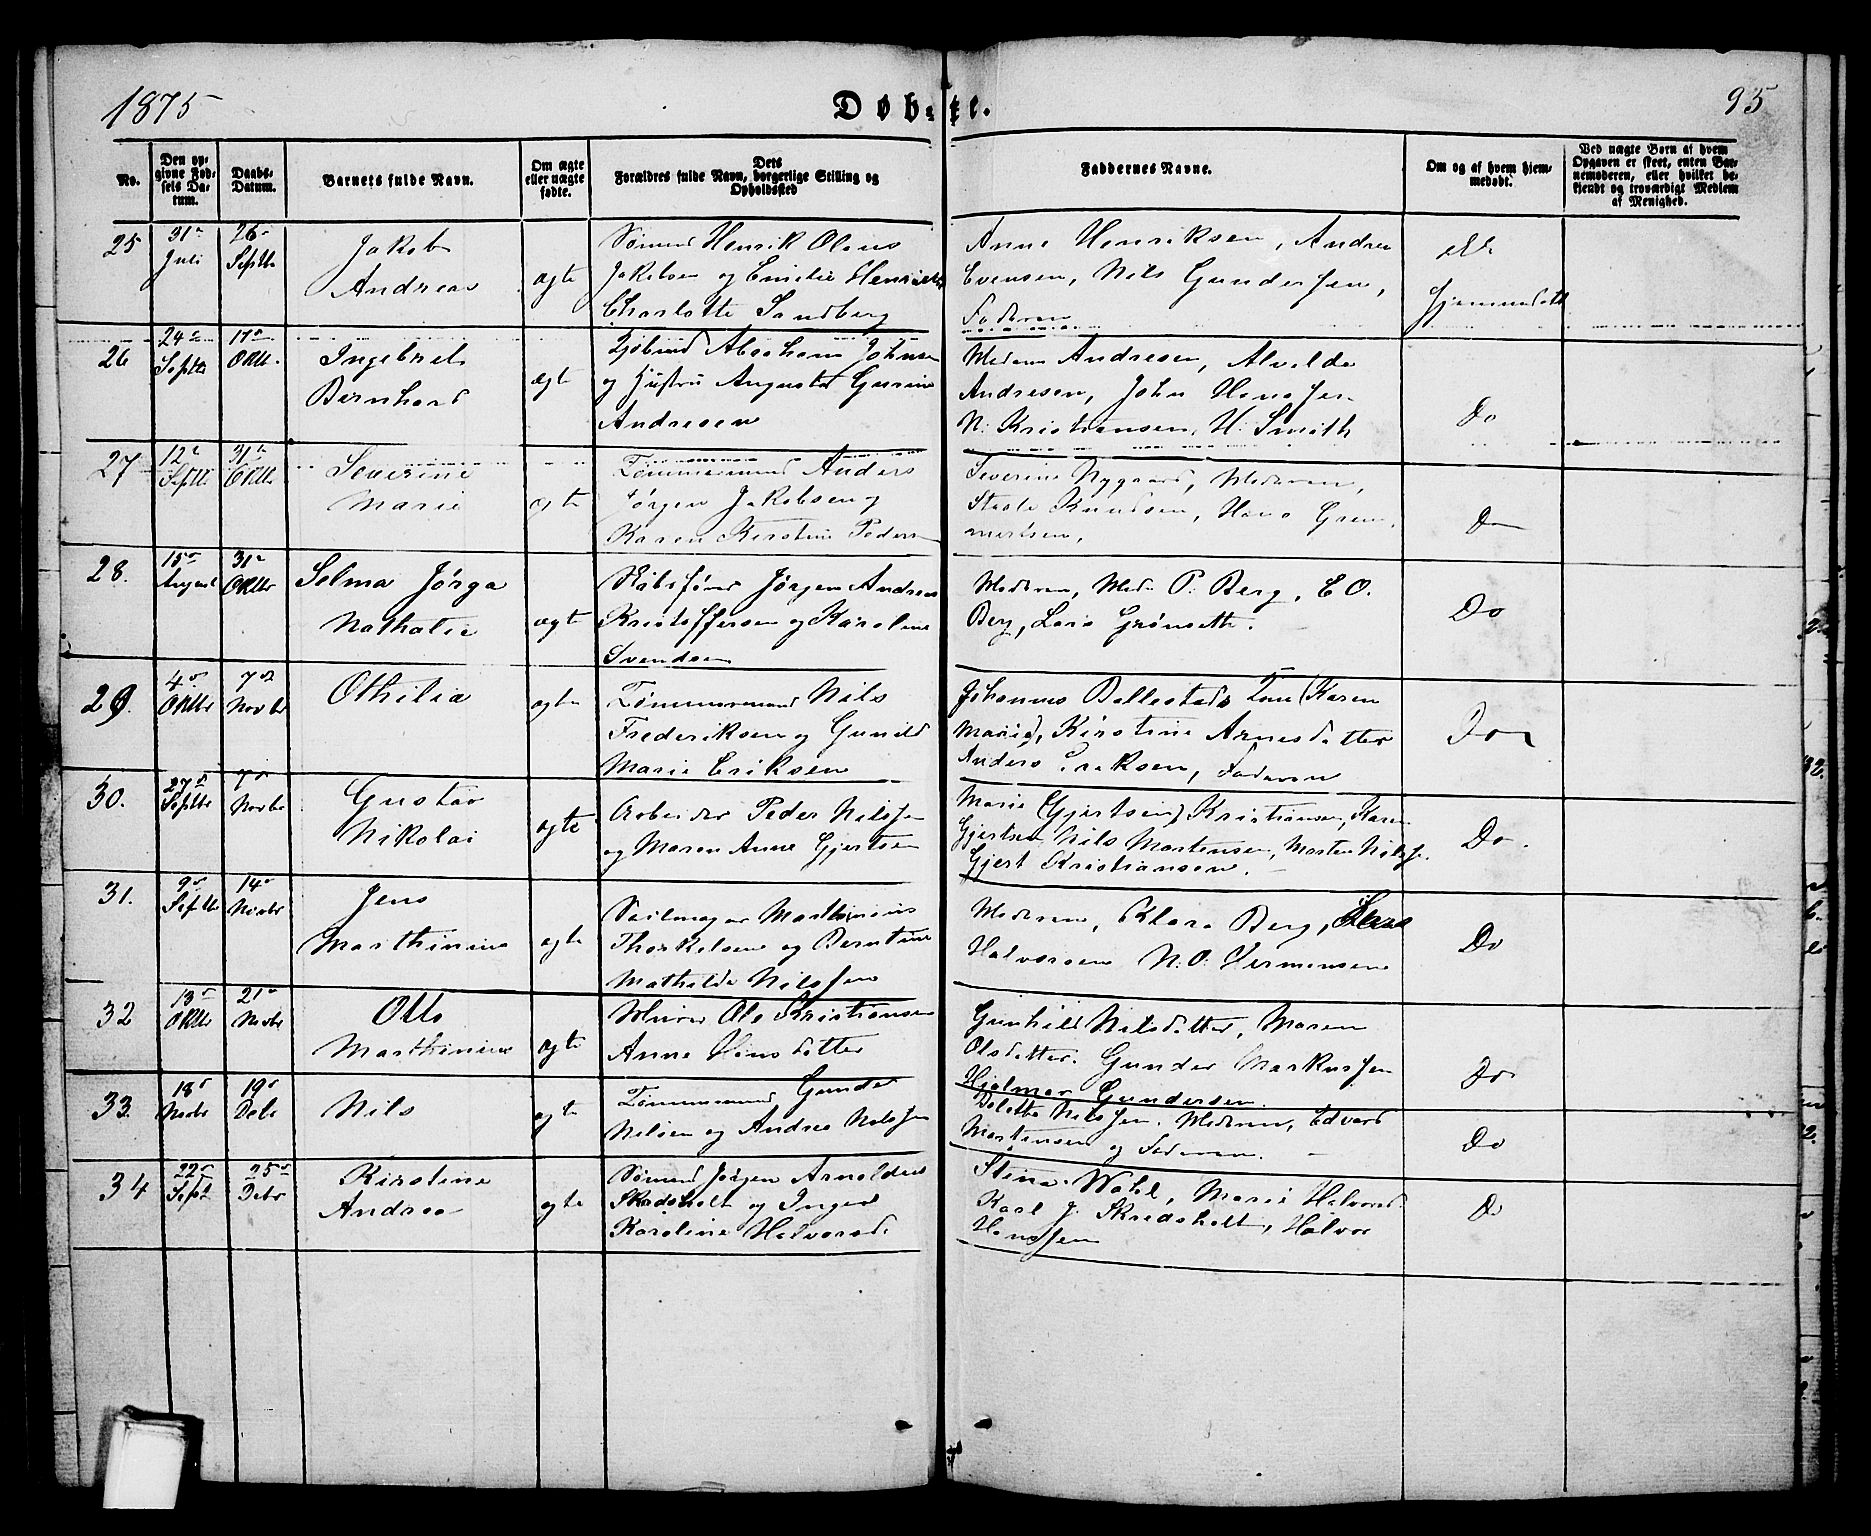 1875
Døb-te.
95
No.
Den op-
givne Fød-
sels Da-
tum.
Daabs-
Datum.
Barnets fulde Navn.
Om ægte
eller uægte
fødte.
Dets
Forældres fulde Navn, borgerlige Stilling og
Opholdssted
Faddernes Navne.
Om og af hvem hjem-
medøbt.
Ved uægte Børn af hvem
Opgaven er skeet, enten Bar-
nemoderen, eller hvilket be-
kjendt og troværdigt Medlem
af Menighed.
25
31
Juli
26
Septbr
Jakob
Andreas
ægte
Sømand Henrik Olaus
Jakobsen og Emelie Henriette
Charlotte Sandberg
Anne Henriksen, Andrea
Evensen, Nils Gundersen,
Faderen
ikke
hjemmedøbt
26
24
Septbr
17
Oktbr.
Ingebret
Bernhard
ægte
Abraham Johnsen
og Hustru Augusta Gurine
Andresen
Andresen, Alvilde
Andresen, John Hansen
N. Kristiansen, H. Smith
Do
27
12
Septbr
31
Oktbr
Severine
Marie
ægte
Tømmermand Anders
Jørgen Jakobsen og
Karen Kirstine Peders
Severine Nygaard, Moderen,
Knudsen, Hans
Do
28.
15
August
31
Oktbr
Selma Jørga
Nathalie
ægte
Skibsfører Jørgen Andreas
Kristoffersen og Karoline
Svendsen
Moderen, Mad. P. Berg, E O.
Berg, Lars Grønseth.
Do
29.
4
Oktbr
7
Novbr
Othilia
ægte
Tømmermand Nils
Frederiksen og Gunild
Marie Eriksen
Johannes Ballestads Kone (Karen
Marie), Kirstine Arnesdatter
Anders Eriksen, Faderen
Do
30.
27
Septbr
7
Novbr
Gustav
Nikolai
ægte
Arbeider Peder Nilssen
og Maren Anne Gjertsen
Marie (Gjertsen) Kristiansen, Karen
Gjertsen Nils Mortensen, Morten Nilss.
Gjert Kristiansen.
Do.
31.
9
Septbr
14
Novbr
Jens
Marthinius
ægte
Seilmager Marthinius
Thorkelsen og Berntine
Mathilde Nilssen
Moderen, Klara Berg,
Halvorsen N. O. Hermansen
Do
32
13
Oktbr
21
Novbr
Otto
Marthinius
ægte
Ole Kristiansen
Anne Hansdatter
Gunhild Nilsdatter, Maren
Olsdatter. Gunder Markussen
Hjalmar Gundersen.
Do
33.
18
Novbr
19
Debr
Nils
ægte
Tømmermand Gunder
Nilsen og Andrea Nilssen
Nilssen, Moderen, Edvard
Mortensen og Faderen.
Do
34
22
Sept
25
Debr
Kirstine
Andrea
ægte
Sømand Jørgen Arnoldus
Skredsholt og Inger
Karoline Halvorsd.
Stina Wahl, Marie Halvorsd.
Karl J. Skredsholt, Halvor
Hanssen
Do